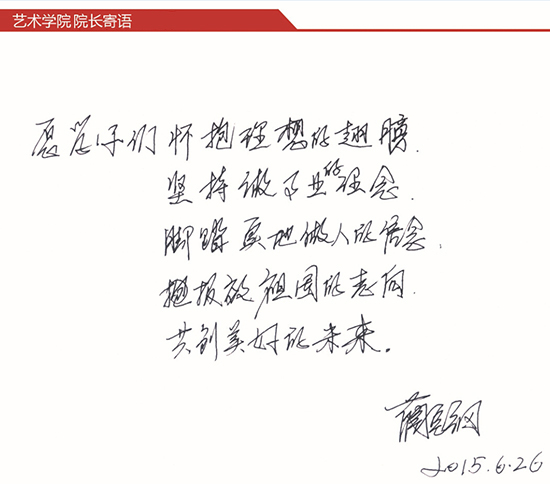 艺术学院 院长寄语
愿学子们怀抱理想的翅膀.
坚持做事业的理念.
脚踏实地做人的信念.
报效祖国的志向.
共创美好的未来.
2015.6.26